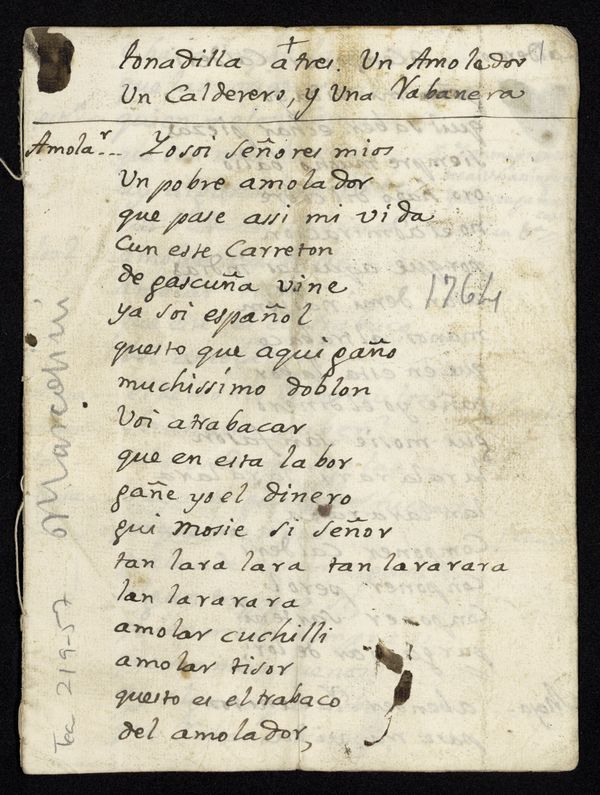 tonadilla a tres. Un Amolador
Un Calderero, y Una Vabanera
Amola.r Yo soi señores mios
Un pobre amolador
que pase assi mi vida
Cun este Carreton
de gascuña vine
ya soi español
questo que aqui gaño
muchissimo doblon
Voi atrabacar
que en esta labor
gañe yo el dinero
gui Mosie si señor
tan lara lara tan lararara
lan lararara
amolar cuchilli
amolar tisor
questo es el trabaco
del amolador,
1764
Marconi
Tea 219-57